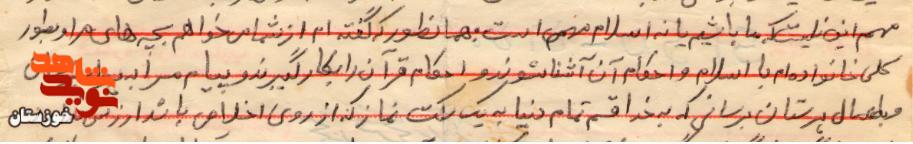 مهم این نیست که ما باشیم یا نه اسلام مهم است همانطور که گفته ام از شما می خواهم بچه های مرا و بطور
کلی خانواده ام با اسلام و احکام آن آشنا شوند و احکام قرآن را بکار گیرند و پیام مرا به
و به همسال برستان برسانی که به خدا قسم تمام دنیا به یک رکعت نماز که از روی اخلاص باشد ارزش
نوید شاهد
خوزستان